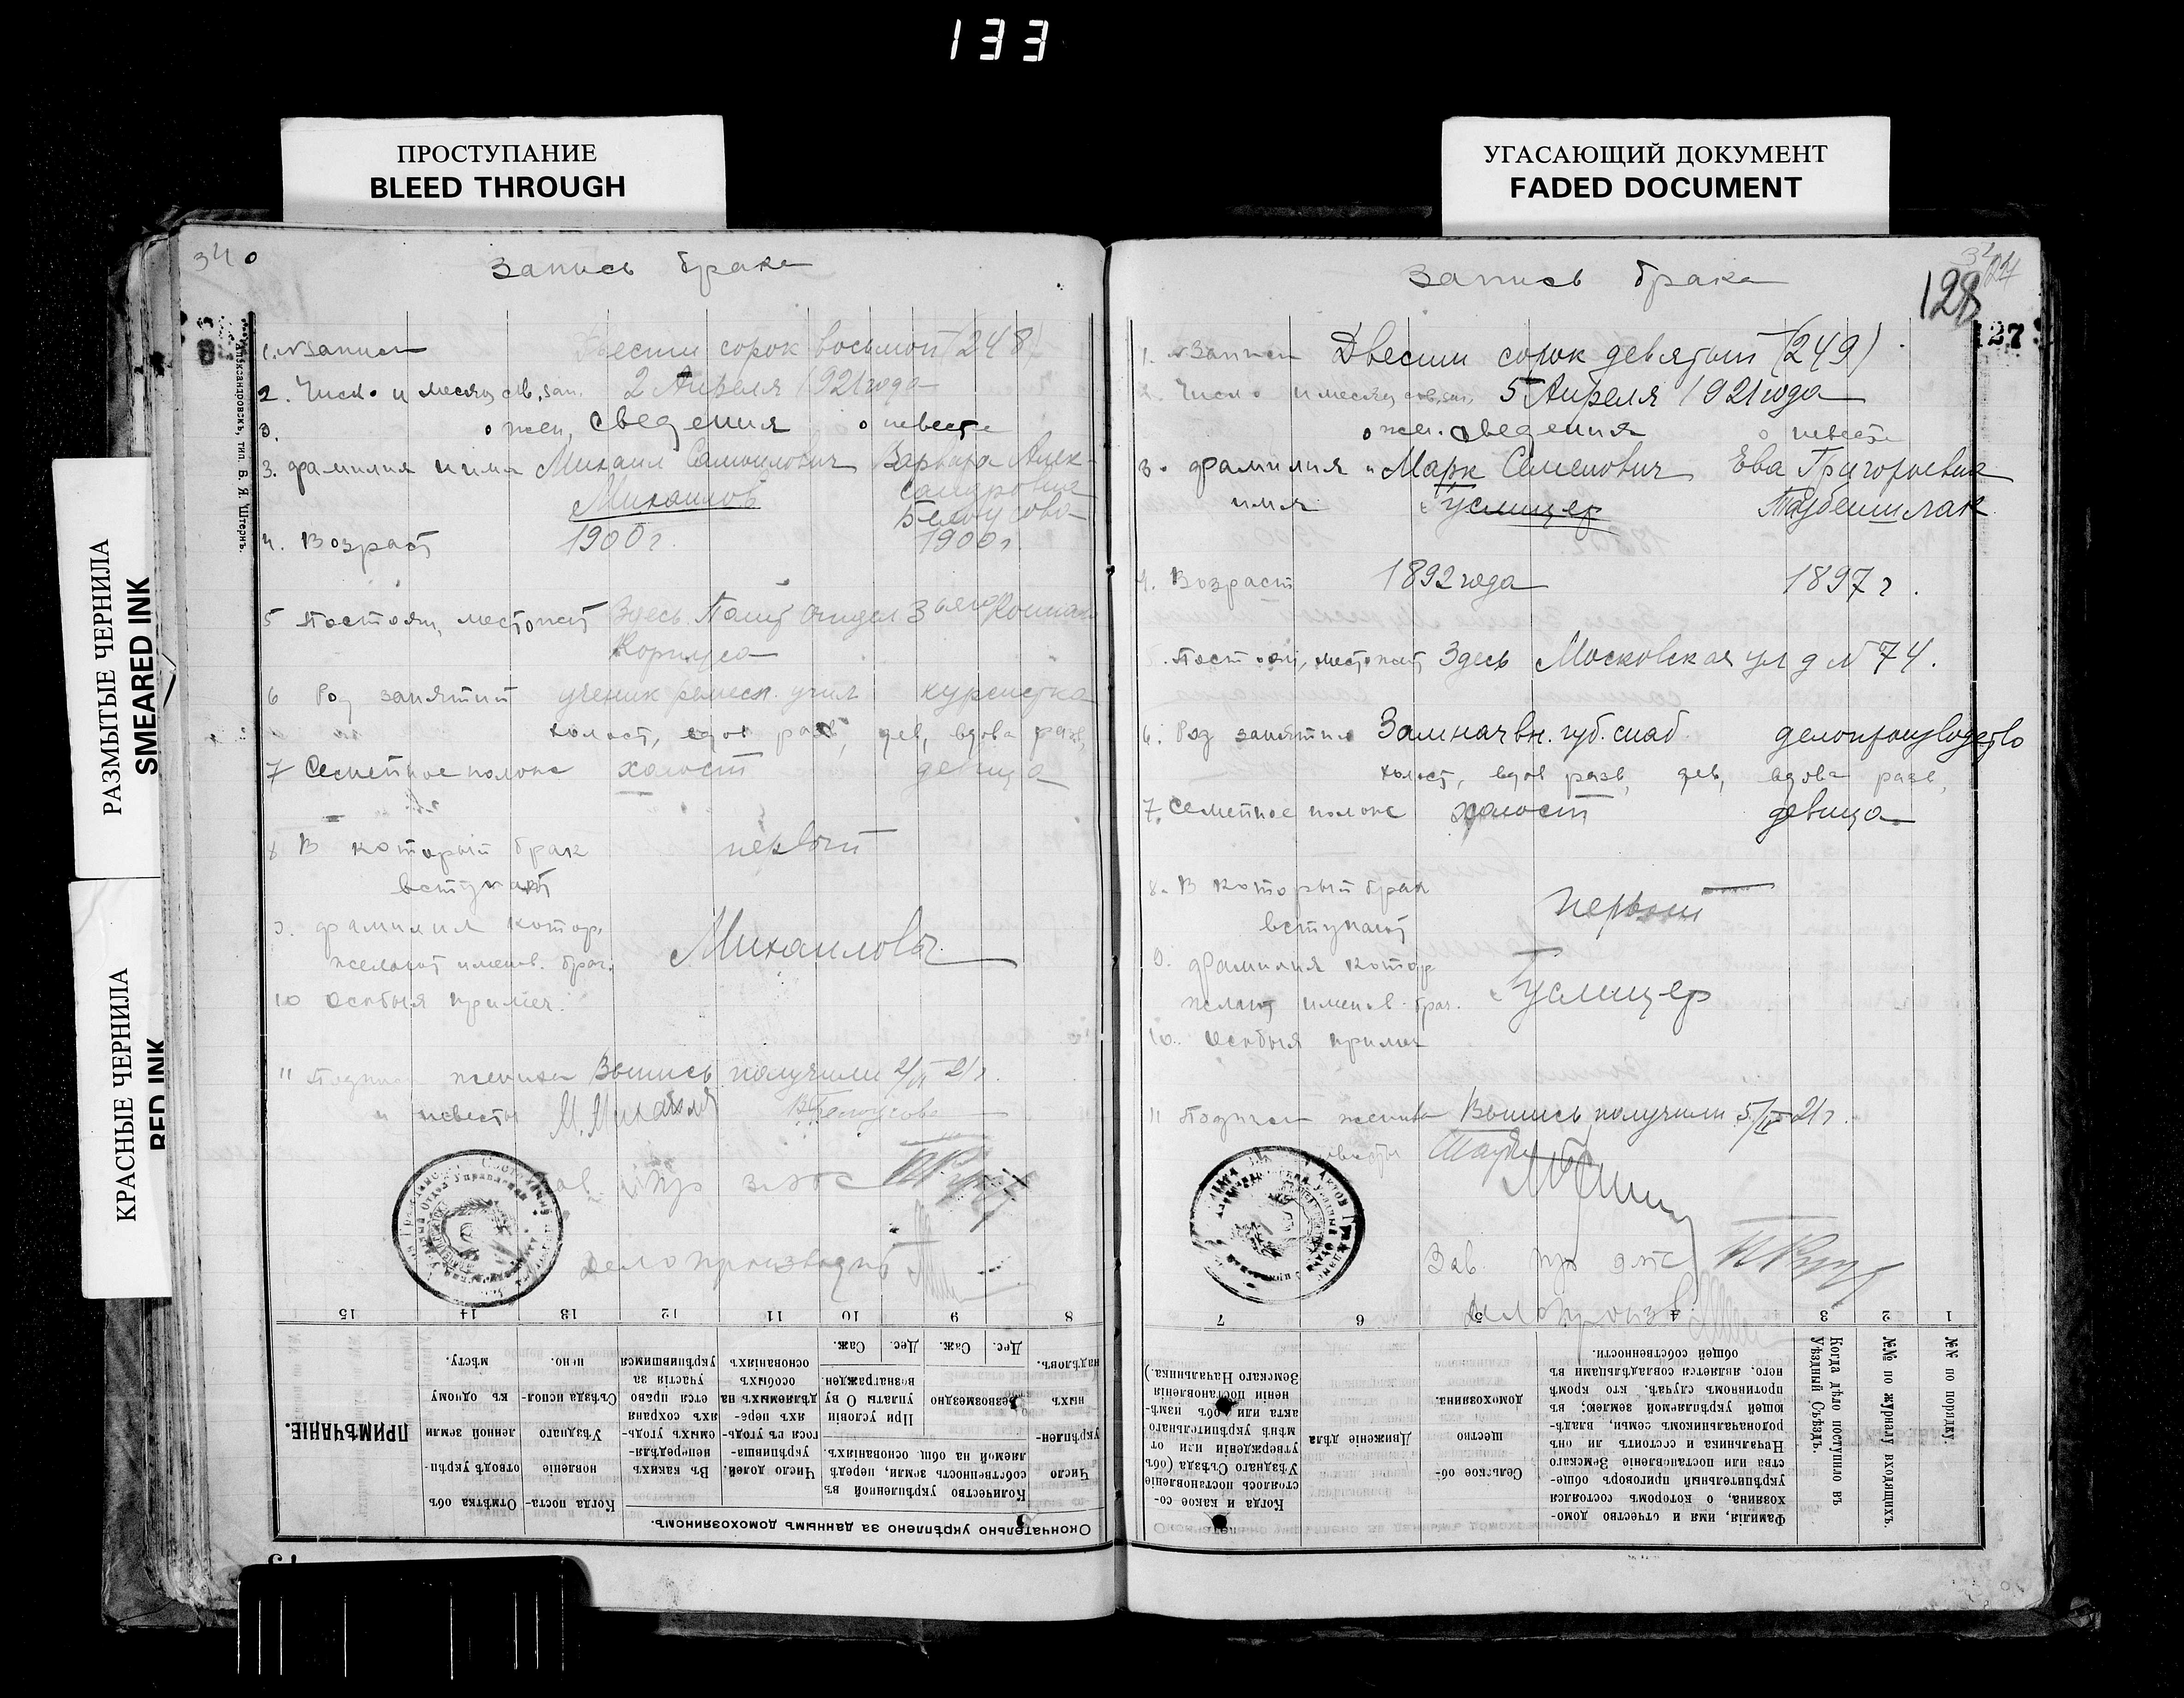 133
ПРОСТУПАНИЕ
BLEED THROUGH
УГАСАЮЩИЙ ДОКУМЕНТ
FADED DOCUMENT
РАЗМЫТЫЕ ЧЕРНИЛА
SMEARED INK
КРАСНЫЕ ЧЕРНИЛА
RED INK
Александровскъ, тип. В. Я. Штернъ.
Запись брака
1. № записи Двести сорок восьмой (248)
2. Число и месяц сов. зап. 2 Апреля 1921 года
3. о жен. сведения о невесте
3. фамилия и имя Михаил Самоилович Варвара Алек-
сандровна
Михайлов Белоусова
4. Возраст 1900 г. 1900 г.
5 Постоян. местожит Здесь Полит отдел 3 Конного
Корпуса
6 Род занятий ученик ремесл. учил курсистка
холост, вдов разв, дев, вдова разв,
7 Семейное полож холост девица
8 В который брак первый
вступают
9. фамилия котор.
желают именов. брач. Михайловы
10 Особыя примеч.
11 Подписи жениха Выпись получили 2/IV 21 г.
и невесты М. Михайлов В Белоусова
Делопроизвод
15 14 13 12 11 10 9 8
Дес. Саж. Дес. Саж.
ПРИМѢЧАНІЕ.
Отмѣтка объ отводѣ укрѣпленной земли къ одному мѣсту.
Когда постановленіе Уѣзднаго Съѣзда исполнено.
Въ какихъ непередѣляемыхъ угодьяхъ сохраняется право участія за укрѣпившимся
Число долей, укрѣпившагося въ угодьяхъ передѣляемыхъ на особыхъ основаніяхъ
Количество укрѣпленной въ собственность земли, передѣляемой на общ. основаніяхъ.
При условіи уплаты О ву вознагражден.
Безвозмездно
Число укрѣпленныхъ надѣловъ.
Окончательно укрѣплено за даннымъ домохозяиномъ.
Запись брака
128
27
1. № Записи Двести сорок девятый (249)
2. Число и месяц сов. зап. 5 Апреля 1921 года
о жен. сведения о невесте
3. фамилия и Марк Семенович Ева Григорьевна
имя Гуслицер Таубеншлак
4. Возраст 1892 года 1897 г.
Постоян, местожит Здесь Московская ул д № 74.
6. Род занятий Замначвн. губ. снаб. делопроизводство
холост, вдов разв, дев, вдова разв,
7. Семейное полож холост девица
8. В который брак первый
вступают
9. фамилия котор
желают именов. брач. Гуслицер
10. Особыя примеч
11 Подписи жениха Выпись получили 5/IV 21 г.
невесты
Зав.
Делопроизв.
7 6 5 4 3 2 1
Когда и какое состоялось постановленіе Уѣзднаго Съѣзда (объ утвержденіи или отмѣнѣ укрѣпительнаго акта или объ измѣненіи постановленія Земскаго Начальника.)
Движеніе дѣла
Сельское общество домохозяина.
Фамилія, имя и отчество домохозяина, о которомъ состоялся укрѣпительный приговоръ общества или постановленіе Земскаго Начальника и состоитъ ли онъ родоначальникомъ семьи, владѣющей укрѣпляемой землею; въ противномъ случаѣ, кто кромѣ него. является совладѣльцами въ общей собственности.
Когда дѣло поступило въ Уѣздный Съѣздъ.
№№ по журналу входящихъ.
№№ по порядку.